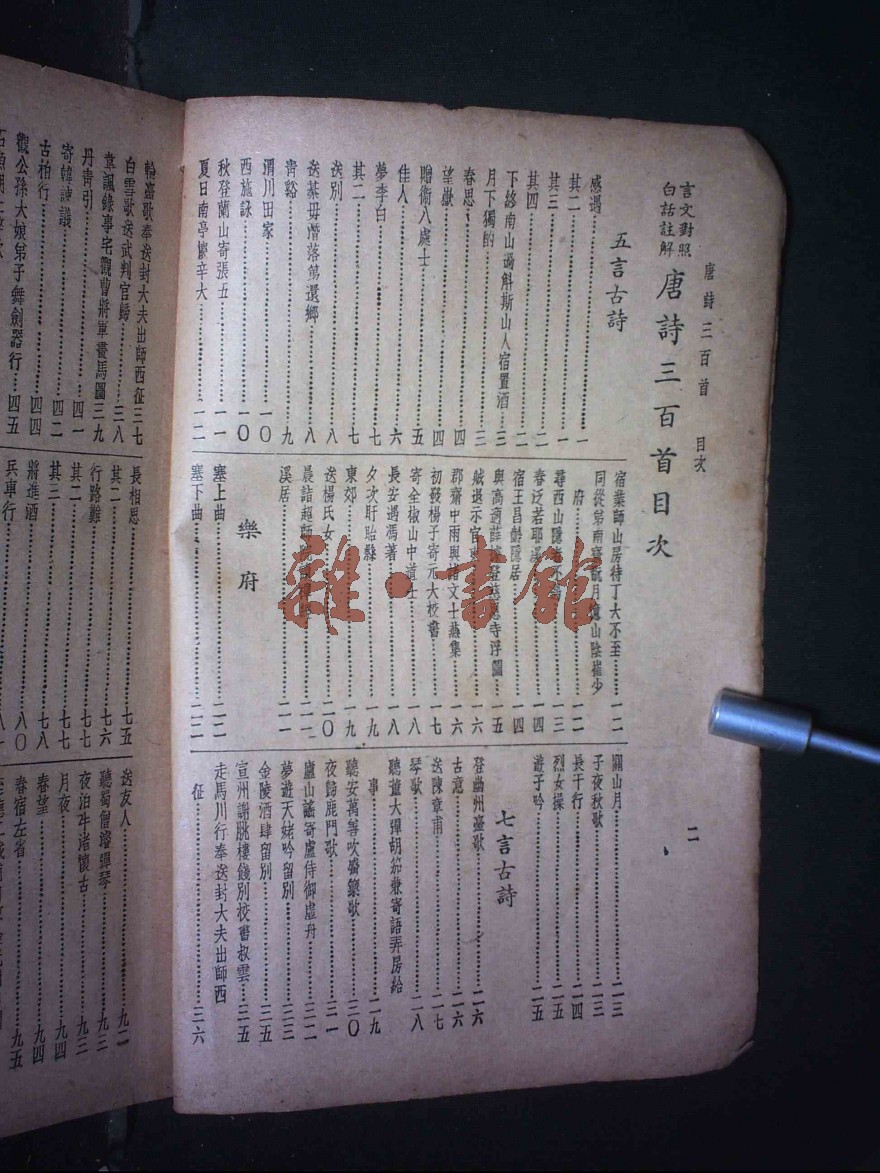 唐詩三百首 目次
二
言文對照
白話註解
唐詩三百首目次
五言古詩
感遇……一
其二……一
其三……一
其四……二
下終南山過斛斯山人宿置酒…三
月下獨酌……三
春思……四
望嶽……四
贈衛八處士……五
佳人……六
夢李白……七
其二……七
送別……八
送綦毋潛落第還鄉……八
青谿……九
渭川田家……一〇
西施詠……一〇
秋登蘭山寄張五……一一
夏日南亭懷辛大……一二
宿業師山房待丁大不至……一二
同從弟南齋翫月憶山陰崔少
府……一二
尋西山隱者不遇……一三
春泛若耶溪……一四
宿王昌齡隱居……一四
與高適薛據登慈恩寺浮圖…一五
賊退示官吏……一六
郡齋中雨與諸文士燕集……一六
初發楊子寄元大校書……一七
寄全椒山中道士……一八
長安遇馮著……一八
夕次盱眙縣……一九
東郊……一九
送楊氏女……二〇
晨詣超師
溪居……二一
樂府
塞上曲……二二
塞下曲……二二
關山月……二三
子夜秋歌……二三
長干行……二四
烈女操……二五
遊子吟……二五
七言古詩
登幽州臺歌……二六
古意……二六
送陳章甫……二七
琴歌……二八
聽董大彈胡笳兼寄語弄房給
事……二九
聽安萬善吹觱篥歌……三〇
夜歸鹿門歌……三一
廬山謠寄盧侍御虛舟……三二
夢遊天姥吟留別……三三
金陵酒肆留別……三五
宣州謝脁樓餞別校書叔雲…三五
走馬川行奉送封大夫出師西
征……三六
輪臺歌奉送封大夫出師西征三七
白雪歌送武判官歸……三八
韋諷錄事宅觀曹將軍畫馬圖三九
丹青引……四一
寄韓諫議……四二
古柏行……四四
觀公孫大娘弟子舞劍器行…四五
長相思……七五
其二……七六
行路難……七七
其二……七七
其三……七八
將進酒……八〇
兵車行
送友人……九二
聽蜀僧濬彈琴……九三
夜泊牛渚懷古……九三
月夜……九四
春望……九四
春宿左省……九五
雜·書館